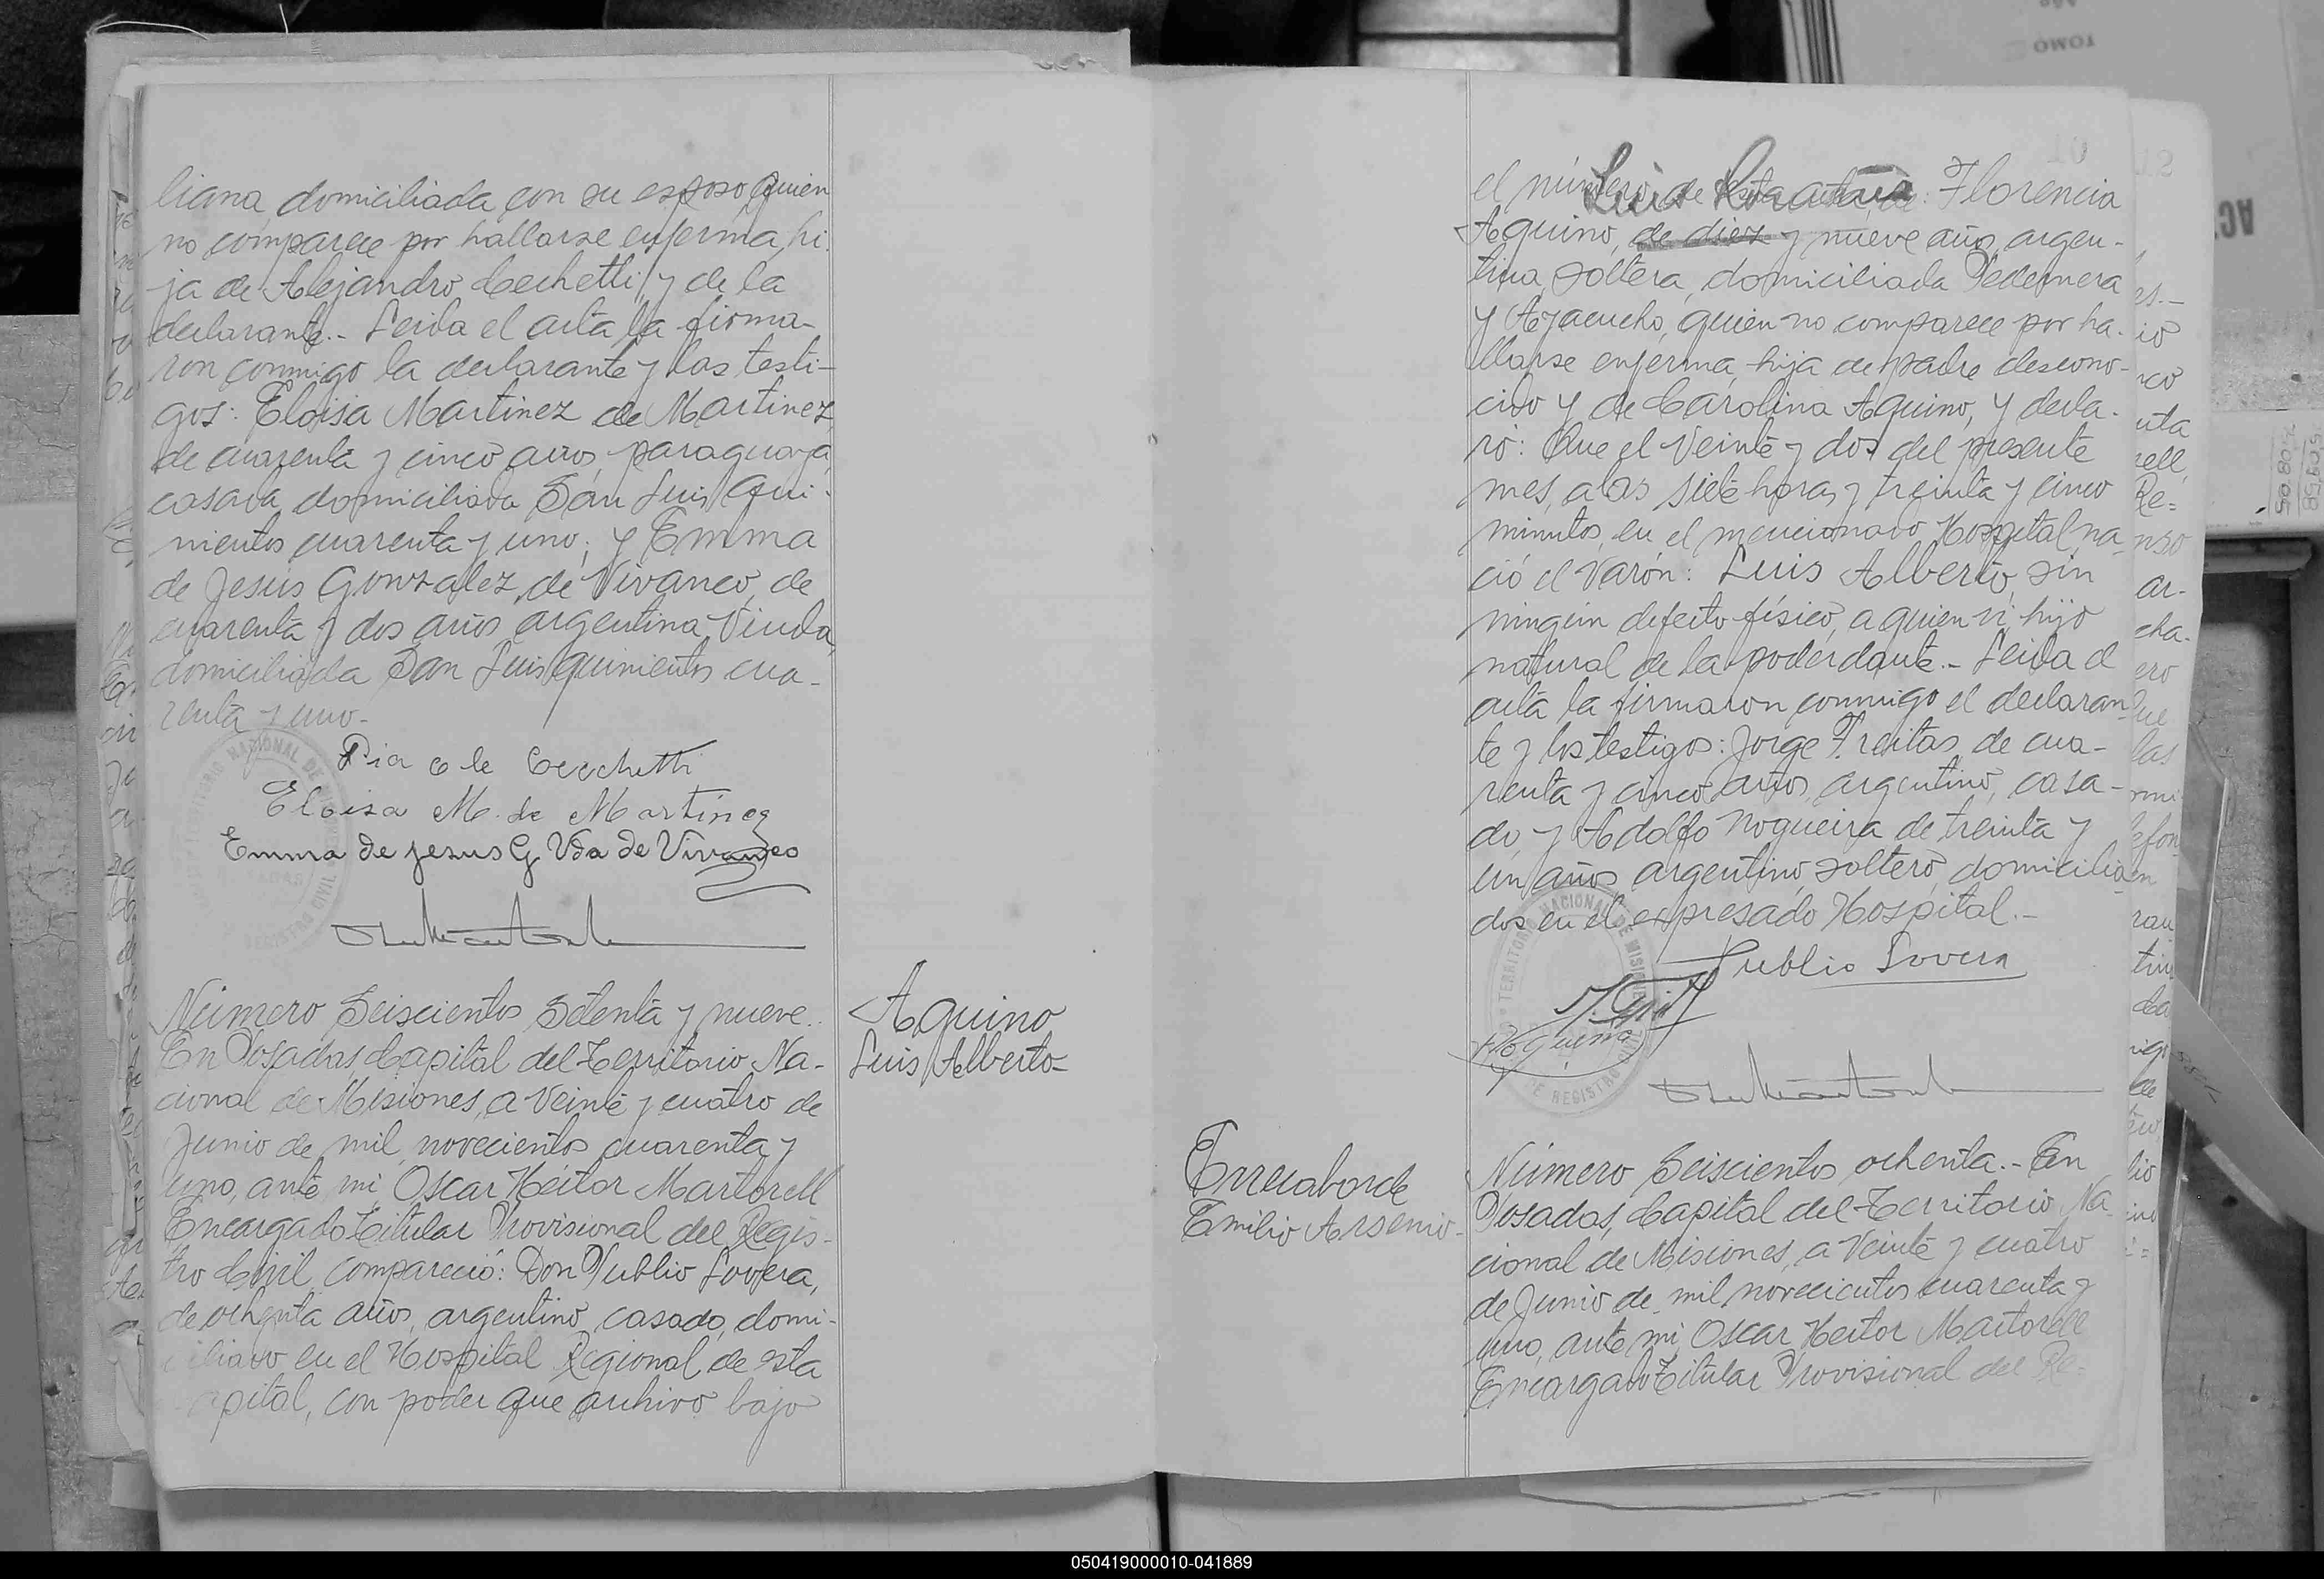 liana domiciliada con su esposo quien
no comparece por hallarse enferma, hi-
ja de Alejandro Cechetti y de la
declarante.- Leida el acta la firma-
ron conmigo la declarante y las testi-
gos: Eloisa Martinez de Martinez,
de cuarenta y cinco años, paraguaya,
casada domiciliada San Luis qui-
nientos cuarenta y uno; y Emma
de Jesús Gonzalez de Vivanco, de
cuarenta y dos años argentina Viuda,
domiciliada San Luis quinientos cua-
renta y uno-
Pia C de Cecchetti
Eloisa M. de Martinez
Emma de Jesus G Vda de Vivanco
Número Seiscientos Setenta y nueve.
En Posadas, Capital del Territorio Na-
cional de Misiones, a Veinte y cuatro de
Junio de mil novecientos cuarenta y
uno, ante mi Oscar Héctor Martorell
Encargado Titular Provisional del Regis-
tro Civil, compareció: Don Publio Lovera,
de ochenta años, argentino, casado, domi-
ciliado en el Hospital Regional de esta
Capital, con poder que archivo bajo
Aquino
Luis Alberto-
el número de esta acta, de: Florencia
Aquino, de diez y nueve años, argen-
tina, soltera, domiciliada Pedernera
y Ayacucho, quien no comparece por ha-
llarse enferma, hija de padre descono-
cido y de Carolina Aquino, y decla-
ró: Que el Veinte y dos del presente
mes, a las siete horas y treinta y cinco
minutos, en el mencionado Hospital, na-
ció el Varón: Luis Alberto, sin
ningún defecto físico, a quien vi, hijo
natural de la poderdante.- Leida el
acta la firmaron conmigo el declaran-
te y los testigos: Jorge Freitas, de cua-
renta y cinco años, argentino, casa-
do, y Adolfo Nogueira de treinta y
un años, argentino, soltero, domicilia-
dos en el expresado Hospital.-
Publio Lovera
Nogueira
Errecaborde
Emilio Arsenio-
Número Seiscientos ochenta.- En
Posadas, Capital del Territorio Na-
cional de Misiones, a Veinte y cuatro
de Junio de mil novecientos cuarenta y
uno, ante mi, Oscar Héctor Martorell
Encargado Titular Provisional del Re-
050419000010-041889